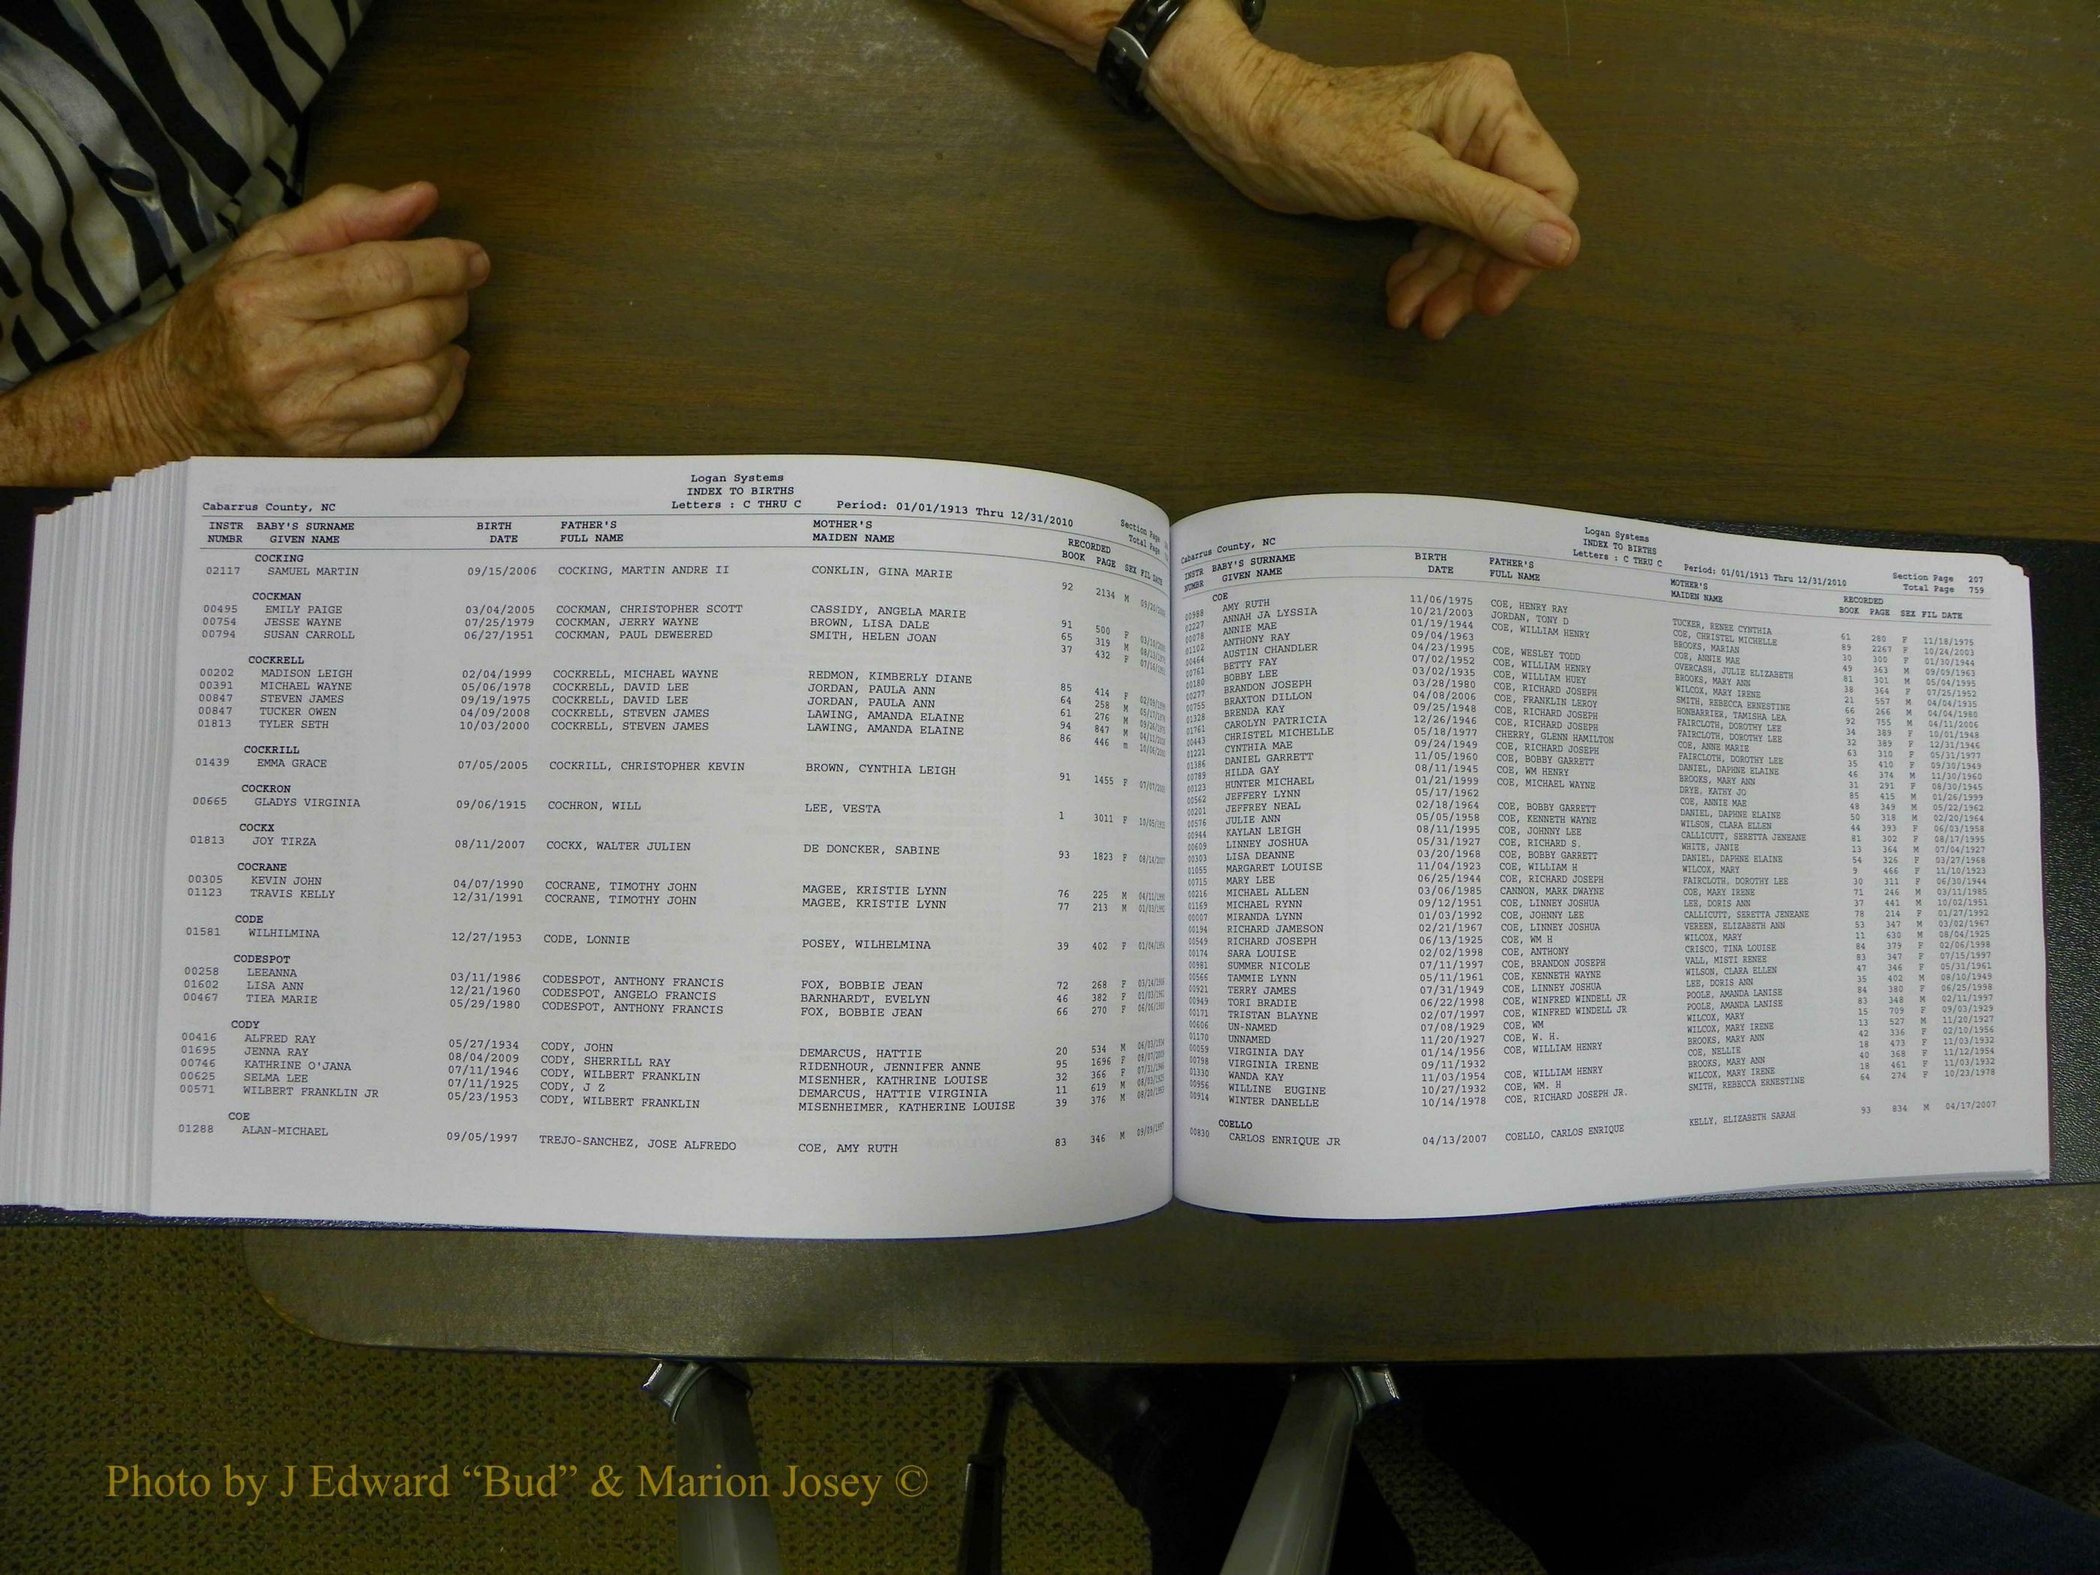 Logan Systems
INDEX TO BIRTHS
Cabarrus County, NC Letters : C THRU C Period: 01/01/1913 Thru 12/31/2010 Section Page
Total Page
INSTR BABY'S SURNAME BIRTH FATHER'S MOTHER'S RECORDED
NUMBR GIVEN NAME DATE FULL NAME MAIDEN NAME BOOK PAGE SEX FIL DATE
COCKING
02117 SAMUEL MARTIN 09/15/2006 COCKING, MARTIN ANDRE II CONKLIN, GINA MARIE 92 2134 M
COCKMAN
00495 EMILY PAIGE 03/04/2005 COCKMAN, CHRISTOPHER SCOTT CASSIDY, ANGELA MARIE 91 500 F
00754 JESSE WAYNE 07/25/1979 COCKMAN, JERRY WAYNE BROWN, LISA DALE 65 319 M
00794 SUSAN CARROLL 06/27/1951 COCKMAN, PAUL DEWEERED SMITH, HELEN JOAN 37 432 F
COCKRELL
00202 MADISON LEIGH 02/04/1999 COCKRELL, MICHAEL WAYNE REDMON, KIMBERLY DIANE 85 414 F
00391 MICHAEL WAYNE 05/06/1978 COCKRELL, DAVID LEE JORDAN, PAULA ANN 64 258 M
00847 STEVEN JAMES 09/19/1975 COCKRELL, DAVID LEE JORDAN, PAULA ANN 61 276 M
00847 TUCKER OWEN 04/09/2008 COCKRELL, STEVEN JAMES LAWING, AMANDA ELAINE 94 847 M
01813 TYLER SETH 10/03/2000 COCKRELL, STEVEN JAMES LAWING, AMANDA ELAINE 86 446 m
COCKRILL
01439 EMMA GRACE 07/05/2005 COCKRILL, CHRISTOPHER KEVIN BROWN, CYNTHIA LEIGH 91 1455 F
COCKRON
00665 GLADYS VIRGINIA 09/06/1915 COCHRON, WILL LEE, VESTA 1 3011 F
COCKX
01813 JOY TIRZA 08/11/2007 COCKX, WALTER JULIEN DE DONCKER, SABINE 93 1823 F
COCRANE
00305 KEVIN JOHN 04/07/1990 COCRANE, TIMOTHY JOHN MAGEE, KRISTIE LYNN 76 225 M
01123 TRAVIS KELLY 12/31/1991 COCRANE, TIMOTHY JOHN MAGEE, KRISTIE LYNN 77 213 M
CODE
01581 WILHILMINA 12/27/1953 CODE, LONNIE POSEY, WILHELMINA 39 402 F
CODESPOT
00258 LEEANNA 03/11/1986 CODESPOT, ANTHONY FRANCIS FOX, BOBBIE JEAN 72 268 F
01602 LISA ANN 12/21/1960 CODESPOT, ANGELO FRANCIS BARNHARDT, EVELYN 46 382 F
00467 TIEA MARIE 05/29/1980 CODESPOT, ANTHONY FRANCIS FOX, BOBBIE JEAN 66 270 F
CODY
00416 ALFRED RAY 05/27/1934 CODY, JOHN DEMARCUS, HATTIE 20 534 M
01695 JENNA RAY 08/04/2009 CODY, SHERRILL RAY RIDENHOUR, JENNIFER ANNE 95 1696 F
00746 KATHRINE O'JANA 07/11/1946 CODY, WILBERT FRANKLIN MISENHER, KATHRINE LOUISE 32 366 F
00625 SELMA LEE 07/11/1925 CODY, J Z DEMARCUS, HATTIE VIRGINIA 11 619 M
00571 WILBERT FRANKLIN JR 05/23/1953 CODY, WILBERT FRANKLIN MISENHEIMER, KATHERINE LOUISE 39 376 M
COE
01288 ALAN-MICHAEL 09/05/1997 TREJO-SANCHEZ, JOSE ALFREDO COE, AMY RUTH 83 346 M
Logan Systems
INDEX TO BIRTHS
Cabarrus County, NC Letters : C THRU C Period: 01/01/1913 Thru 12/31/2010 Section Page 207
Total Page 759
INSTR BABY'S SURNAME BIRTH FATHER'S MOTHER'S RECORDED
NUMBR GIVEN NAME DATE FULL NAME MAIDEN NAME BOOK PAGE SEX FIL DATE
COE
00988 AMY RUTH 11/06/1975 COE, HENRY RAY TUCKER, RENEE CYNTHIA 61 280 F 11/18/1975
02227 ANNAH JA LYSSIA 10/21/2003 JORDAN, TONY D COE, CHRISTEL MICHELLE 89 2267 F 10/24/2003
00078 ANNIE MAE 01/19/1944 COE, WILLIAM HENRY BROOKS, MARIAN 30 300 F 01/30/1944
01102 ANTHONY RAY 09/04/1963 COE, ANNIE MAE 49 363 M 09/09/1963
00464 AUSTIN CHANDLER 04/23/1995 COE, WESLEY TODD OVERCASH, JULIE ELIZABETH 81 301 M 05/04/1995
00761 BETTY FAY 07/02/1952 COE, WILLIAM HENRY BROOKS, MARY ANN 38 364 F 07/25/1952
00180 BOBBY LEE 03/02/1935 COE, WILLIAM HUEY WILCOX, MARY IRENE 21 557 M 04/04/1935
00277 BRANDON JOSEPH 03/28/1980 COE, RICHARD JOSEPH SMITH, REBECCA ERNESTINE 66 266 M 04/04/1980
00755 BRAXTON DILLON 04/08/2006 COE, FRANKLIN LEROY HONBARRIER, TAMISHA LEA 92 755 M 04/11/2006
01328 BRENDA KAY 09/25/1948 COE, RICHARD JOSEPH FAIRCLOTH, DOROTHY LEE 34 389 F 10/01/1948
01761 CAROLYN PATRICIA 12/26/1946 COE, RICHARD JOSEPH FAIRCLOTH, DOROTHY LEE 32 389 F 12/31/1946
00443 CHRISTEL MICHELLE 05/18/1977 CHERRY, GLENN HAMILTON COE, ANNE MARIE 63 310 F 05/31/1977
01221 CYNTHIA MAE 09/24/1949 COE, RICHARD JOSEPH FAIRCLOTH, DOROTHY LEE 35 410 F 09/30/1949
01386 DANIEL GARRETT 11/05/1960 COE, BOBBY GARRETT DANIEL, DAPHNE ELAINE 46 374 M 11/30/1960
00789 HILDA GAY 08/11/1945 COE, WM HENRY BROOKS, MARY ANN 31 291 F 08/30/1945
00123 HUNTER MICHAEL 01/21/1999 COE, MICHAEL WAYNE DRYE, KATHY JO 85 415 M 01/26/1999
00562 JEFFERY LYNN 05/17/1962 COE, ANNIE MAE 48 349 M 05/22/1962
00201 JEFFREY NEAL 02/18/1964 COE, BOBBY GARRETT DANIEL, DAPHNE ELAINE 50 318 M 02/20/1964
00576 JULIE ANN 05/05/1958 COE, KENNETH WAYNE WILSON, CLARA ELLEN 44 393 F 06/03/1958
00944 KAYLAN LEIGH 08/11/1995 COE, JOHNNY LEE CALLICUTT, SERETTA JENEANE 81 302 F 08/17/1995
00609 LINNEY JOSHUA 05/31/1927 COE, RICHARD S. WHITE, JANIE 13 364 M 07/04/1927
00303 LISA DEANNE 03/20/1968 COE, BOBBY GARRETT DANIEL, DAPHNE ELAINE 54 326 F 03/27/1968
01055 MARGARET LOUISE 11/04/1923 COE, WILLIAM H WILCOX, MARY 9 466 F 11/10/1923
00715 MARY LEE 06/25/1944 COE, RICHARD JOSEPH FAIRCLOTH, DOROTHY LEE 30 311 F 06/30/1944
00216 MICHAEL ALLEN 03/06/1985 CANNON, MARK DWAYNE COE, MARY IRENE 71 246 M 03/11/1985
01169 MICHAEL RYNN 09/12/1951 COE, LINNEY JOSHUA LEE, DORIS ANN 37 441 M 10/02/1951
00007 MIRANDA LYNN 01/03/1992 COE, JOHNNY LEE CALLICUTT, SERETTA JENEANE 78 214 F 01/27/1992
00194 RICHARD JAMESON 02/21/1967 COE, LINNEY JOSHUA VEREEN, ELIZABETH ANN 53 347 M 03/02/1967
00549 RICHARD JOSEPH 06/13/1925 COE, WM H WILCOX, MARY 11 630 M 08/04/1925
00174 SARA LOUISE 02/02/1998 COE, ANTHONY CRISCO, TINA LOUISE 84 379 F 02/06/1998
00981 SUMMER NICOLE 07/11/1997 COE, BRANDON JOSEPH VALL, MISTI RENEE 83 347 F 07/15/1997
00566 TAMMIE LYNN 05/11/1961 COE, KENNETH WAYNE WILSON, CLARA ELLEN 47 346 F 05/31/1961
00921 TERRY JAMES 07/31/1949 COE, LINNEY JOSHUA LEE, DORIS ANN 35 402 M 08/10/1949
00949 TORI BRADIE 06/22/1998 COE, WINFRED WINDELL JR POOLE, AMANDA LANISE 84 380 F 06/25/1998
00171 TRISTAN BLAYNE 02/07/1997 COE, WINFRED WINDELL JR POOLE, AMANDA LANISE 83 348 M 02/11/1997
00606 UN-NAMED 07/08/1929 COE, WM WILCOX, MARY 15 709 F 09/03/1929
01170 UNNAMED 11/20/1927 COE, W. H. WILCOX, MARY IRENE 13 527 M 11/20/1927
00059 VIRGINIA DAY 01/14/1956 COE, WILLIAM HENRY BROOKS, MARY ANN 42 336 F 02/10/1956
00798 VIRGINIA IRENE 09/11/1932 COE, NELLIE 18 473 F 11/03/1932
01330 WANDA KAY 11/03/1954 COE, WILLIAM HENRY BROOKS, MARY ANN 40 368 F 11/12/1954
00956 WILLINE EUGINE 10/27/1932 COE, WM. H WILCOX, MARY IRENE 18 461 F 11/03/1932
00914 WINTER DANELLE 10/14/1978 COE, RICHARD JOSEPH JR. SMITH, REBECCA ERNESTINE 64 274 F 10/23/1978
COELLO
00830 CARLOS ENRIQUE JR 04/13/2007 COELLO, CARLOS ENRIQUE KELLY, ELIZABETH SARAH 93 834 M 04/17/2007
Photo by J Edward “Bud” & Marion Josey ©